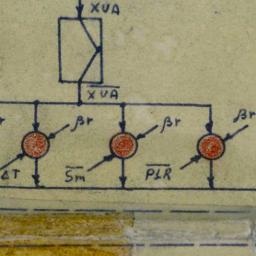 XUA
X̅U̅A̅
βr βr βr
ΔT S̅m̅ P̅Ł̅R̅